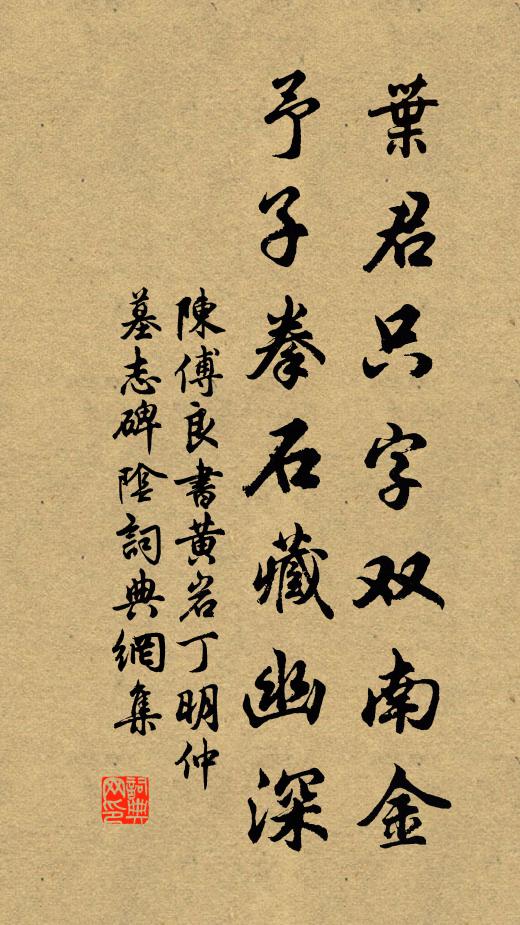 葉君只字双南金
予子拳石藏幽深
陳傅良書黃岩丁明仲
墓志碑陰詞典網集
詞典
网印